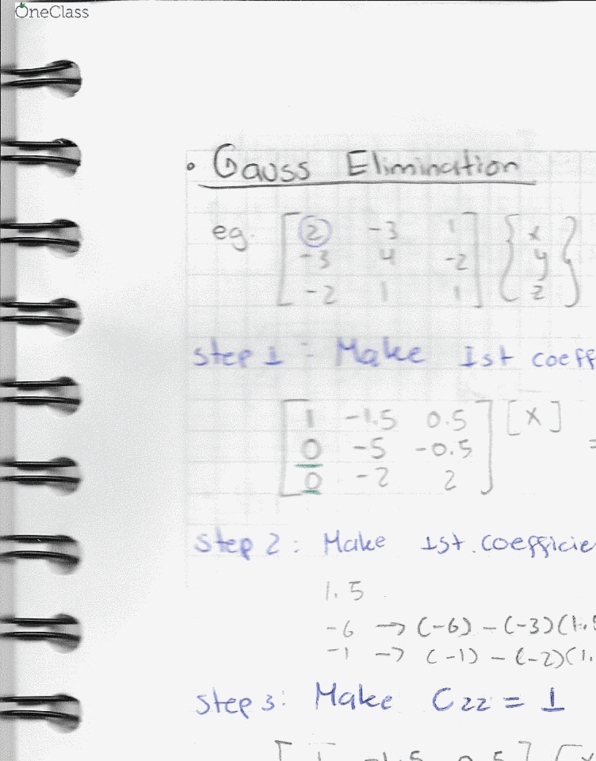 OneClass
• Gauss Elimination
eg. [ 2 -3 1 ] { x }
-3 4 -2 y
-2 1 1 z
Step 1: Make 1st coeff
[ 1 -1.5 0.5 ] [x] =
0 -5 -0.5
0 -2 2
Step 2: Make 1st. coefficie
1.5
-6 → (-6) - (-3)(1.5
-1 → (-1) - (-2)(1.
Step 3: Make C22 = 1
[ 1 -1.5 0.5 ] [x